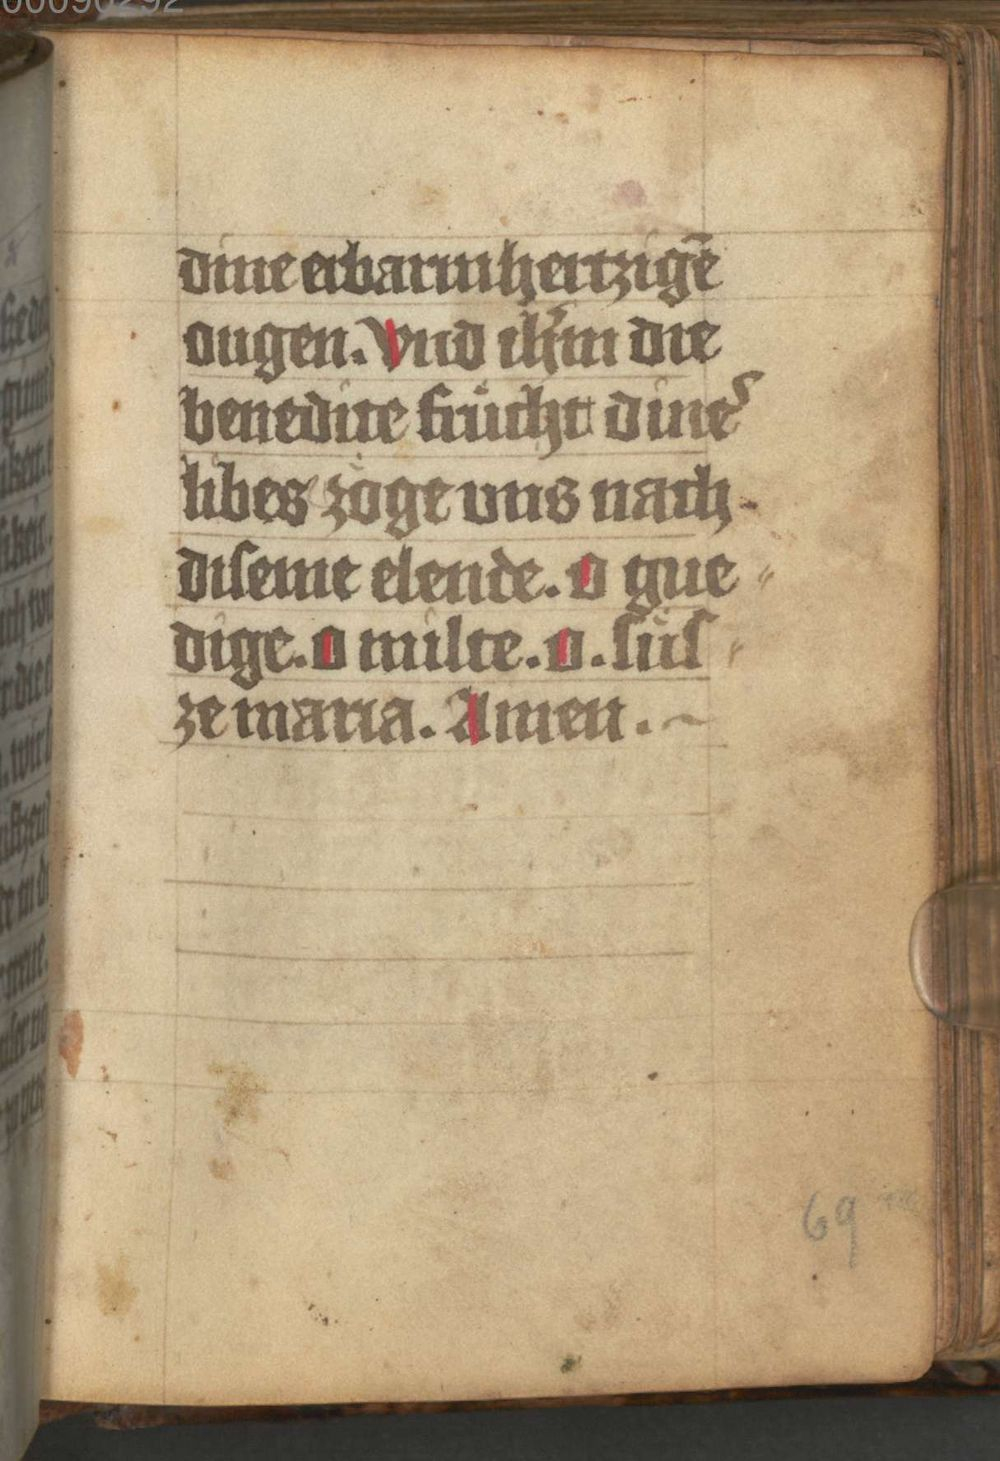 dine erbarmhertzigē
ougen. Vnd ih̄m die
benedite frücht dine͛
libes zöge vns nach
diseme elende. o gne
dige. o milte. o. süs
ze maria. Amen.
69